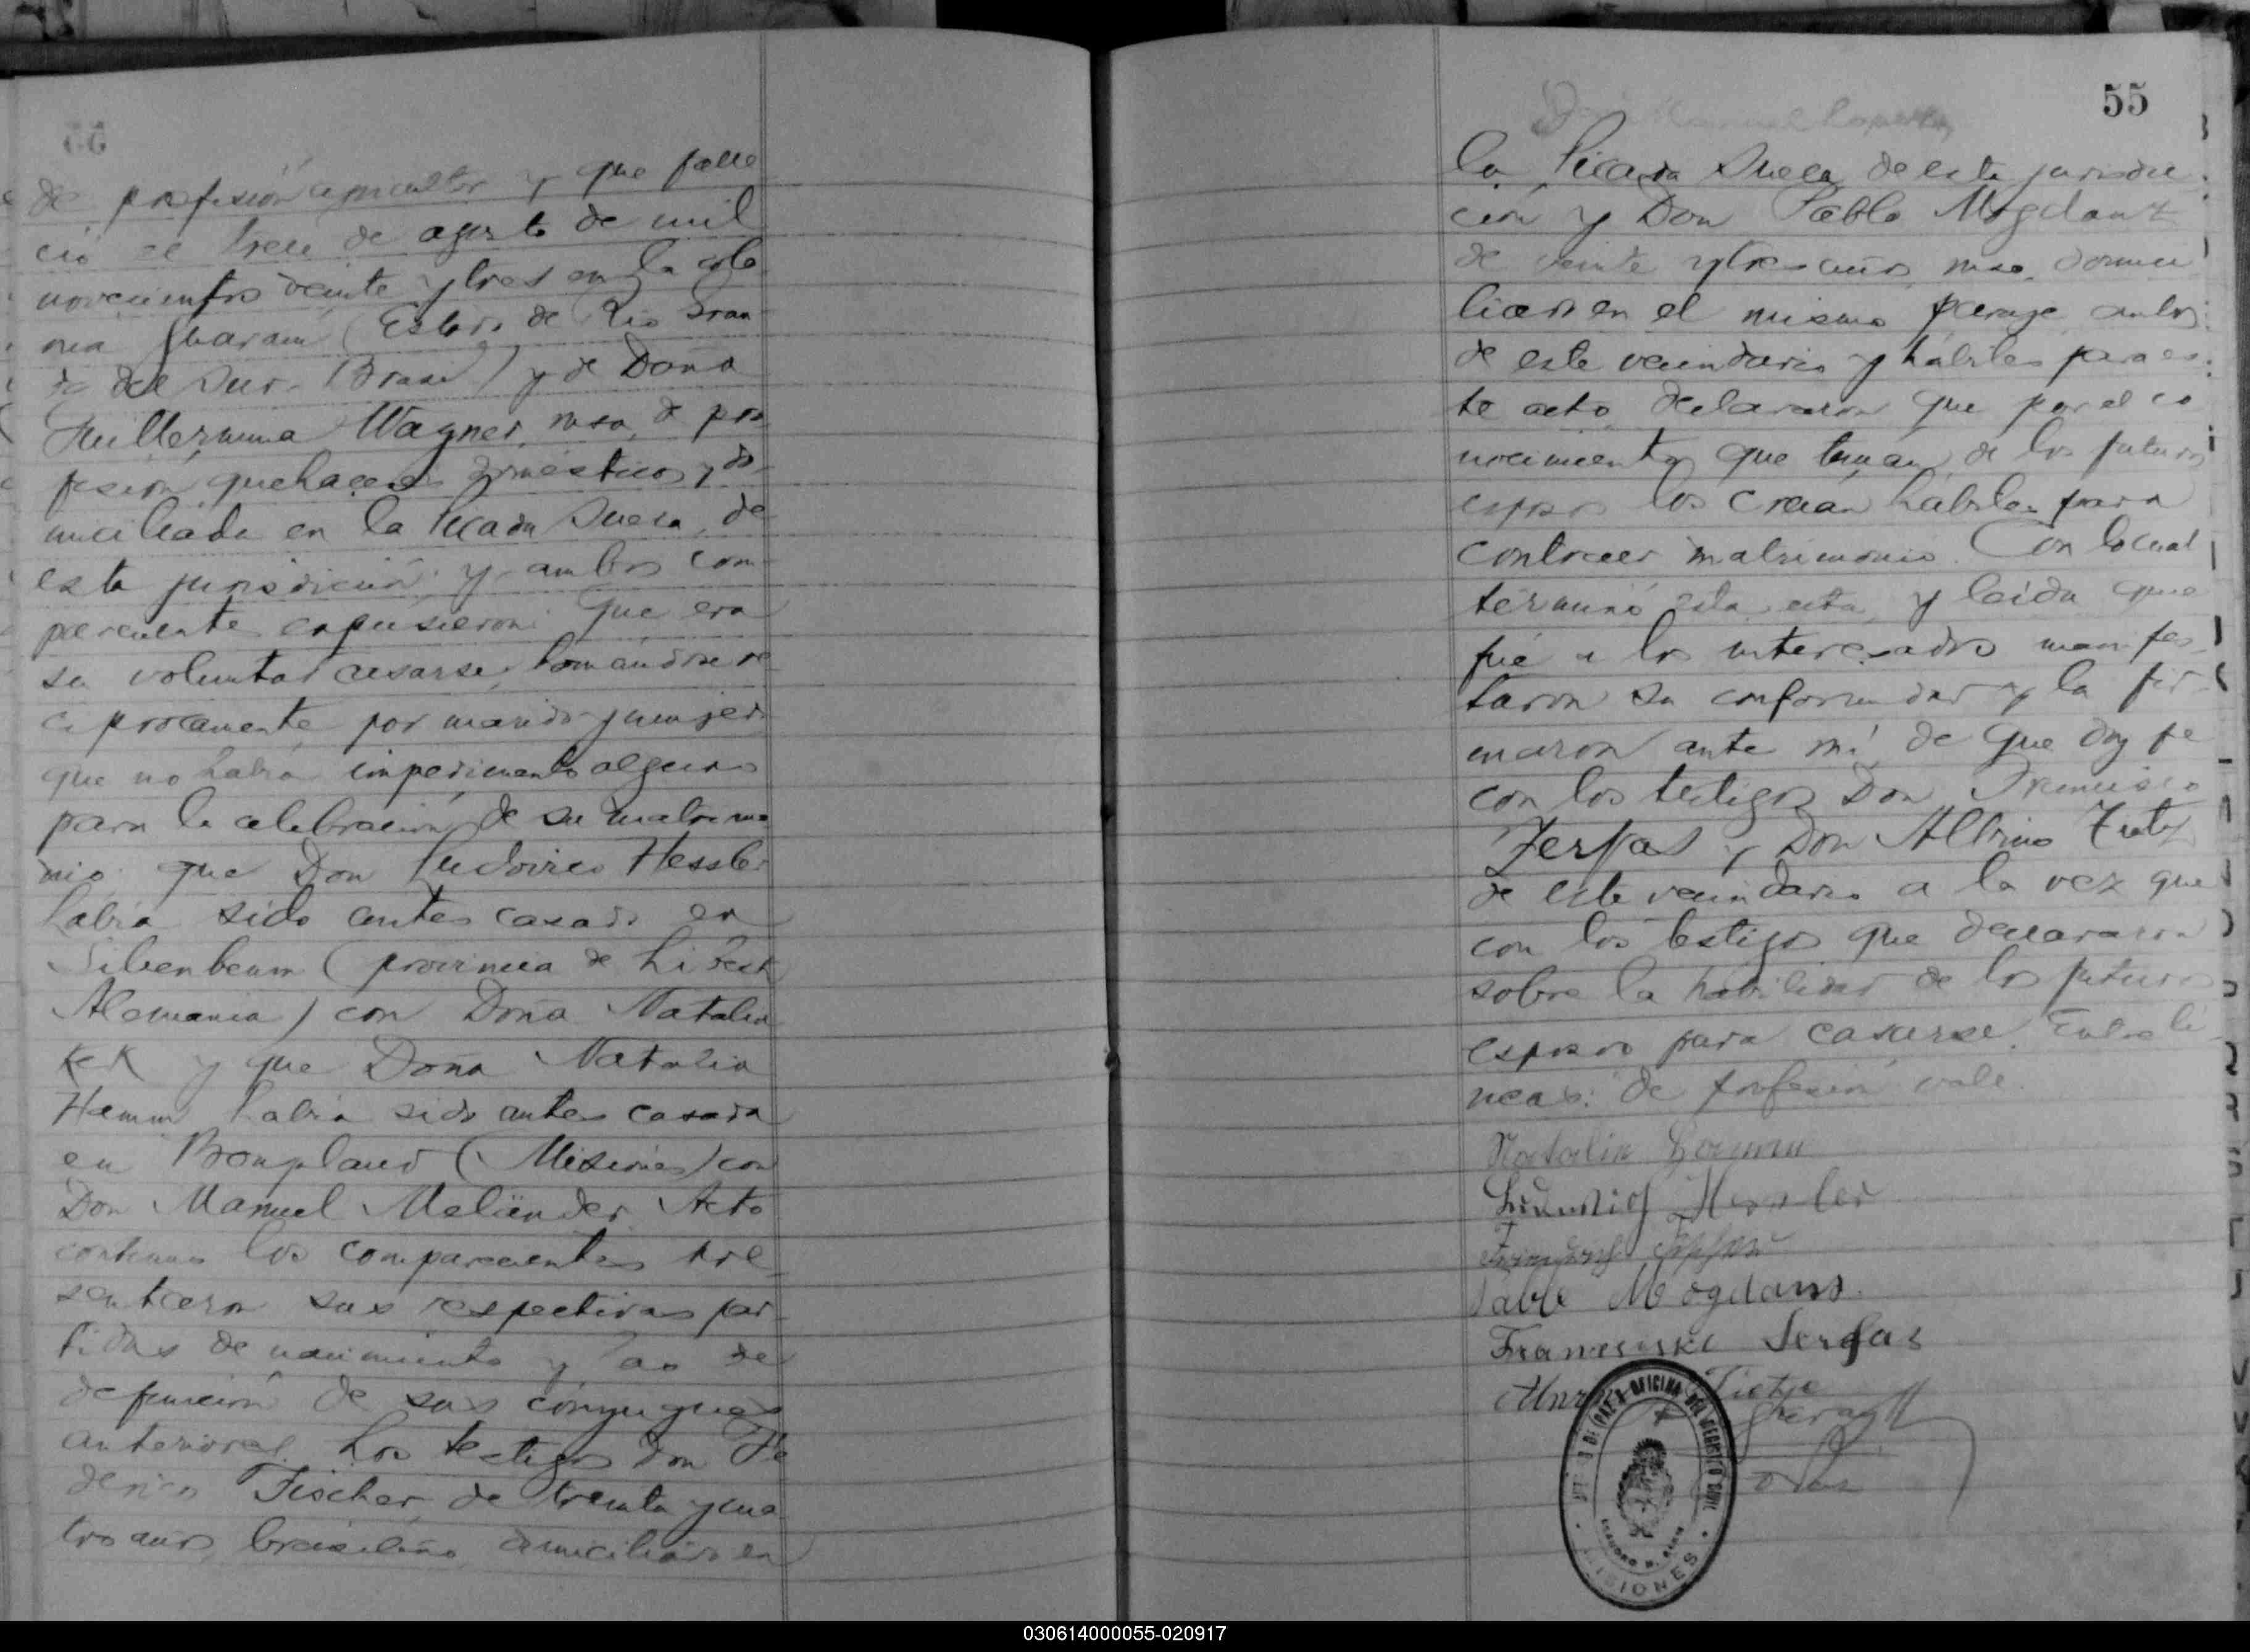 de profesión agricultor y que falle
ció el trece de agosto de mil
novecientos veinte y tres en la colo
nia Guaraní (Estado de Rio Gran
de del Sur. Brasil) y de Doña
Guillermina Wagner, rusa, de pro
fesión quehaceres domésticos y do
miciliada en la Picada Sueca, de
esta jurisdicción y ambos com
parecientes expusieron: Que era
su voluntad casarse, tomándose re
ciprocamente por marido y mujer
que no había impedimento alguno
para la celebración de su matrimo
nio que Don Ludovico Hessler
había sido antes casado en
(provincia de
Alemania) con Doña Natalia
Kek y que Doña Natalia
Hamm había sido antes casada
en Bonpland (Misiones) con
Don Manuel Meliënder. Acto
continuo los comparecientes pre
sentaron sus respectivas par
tidas de nacimiento y las de
defunción de sus cónyugues
anteriores. Los testigos Don Fe
derico Fischer, de treinta y cua
tro años, brasileño, domiciliado en
55
la Picada Sueca de esta jurisdic
ción y Don Pablo Mogdanz
de veinte y tres años, ruso, domici
liado en el mismo paraje, ambos
de este vecindario y hábiles para es
te acto, declararon que por el co
nocimiento que tenían de los futuros
esposos los creían hábiles para
contraer matrimonio. Con lo cual
terminó esta acta, y leída que
fué a los interesados manifes
taron su conformidad y la fir
maron ante mí, de que doy fe
con los testigos Don Francisco
Zerfas y Don Albino Tietz
de este vecindario a la vez que
con los testigos que declararon
sobre la habilidad de los futuros
esposos para casarse. Entre lí
neas: de profesión vale.
Natalia
Ludwig Hessler
Pablo Mogdans
Franzisko Serfas
Tietze
OFICINA DEL REGISTRO CIVIL
MISIONES
030614000055-020917